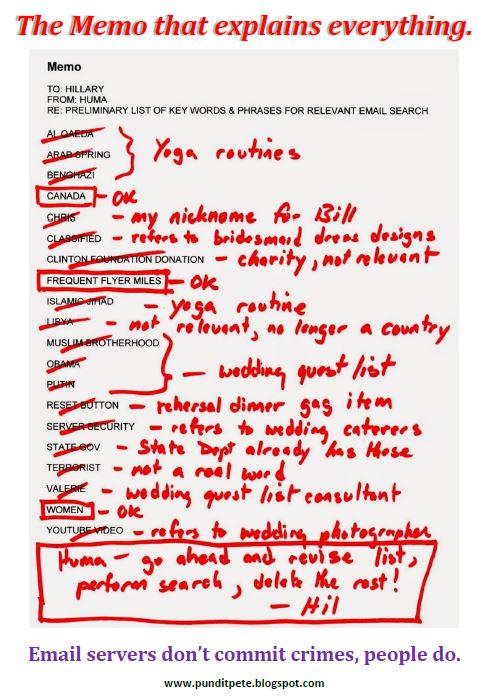 The Memo that explains everything.
Memo
TO: HILLARY
FROM: HUMA
RE: PRELIMINARY LIST OF KEY WORDS & PHRASES FOR RELEVANT EMAIL SEARCH
AL QAEDA
ARAB SPRING } Yoga routines
BENGHAZI
CANADA - OK
CHRIS - my nickname for Bill
CLASSIFIED - refers to bridesmaid dress designs
CLINTON FOUNDATION DONATION - charity, not relevant
FREQUENT FLYER MILES - OK
ISLAMIC JIHAD - Yoga routine
LIBYA - not relevant, no longer a country
MUSLIM BROTHERHOOD
OBAMA } - wedding guest list
PUTIN
RESET BUTTON - rehersal dinner gag item
SERVER SECURITY - refers to wedding caterers
STATE.GOV - State Dept already has these
TERRORIST - not a real word
VALERIE - wedding guest list consultant
WOMEN - OK
YOUTUBE VIDEO - refers to wedding photographer
Huma - go ahead and revise list,
perform search, delete the rest!
- Hil
Email servers don't commit crimes, people do.
www.punditpete.blogspot.com